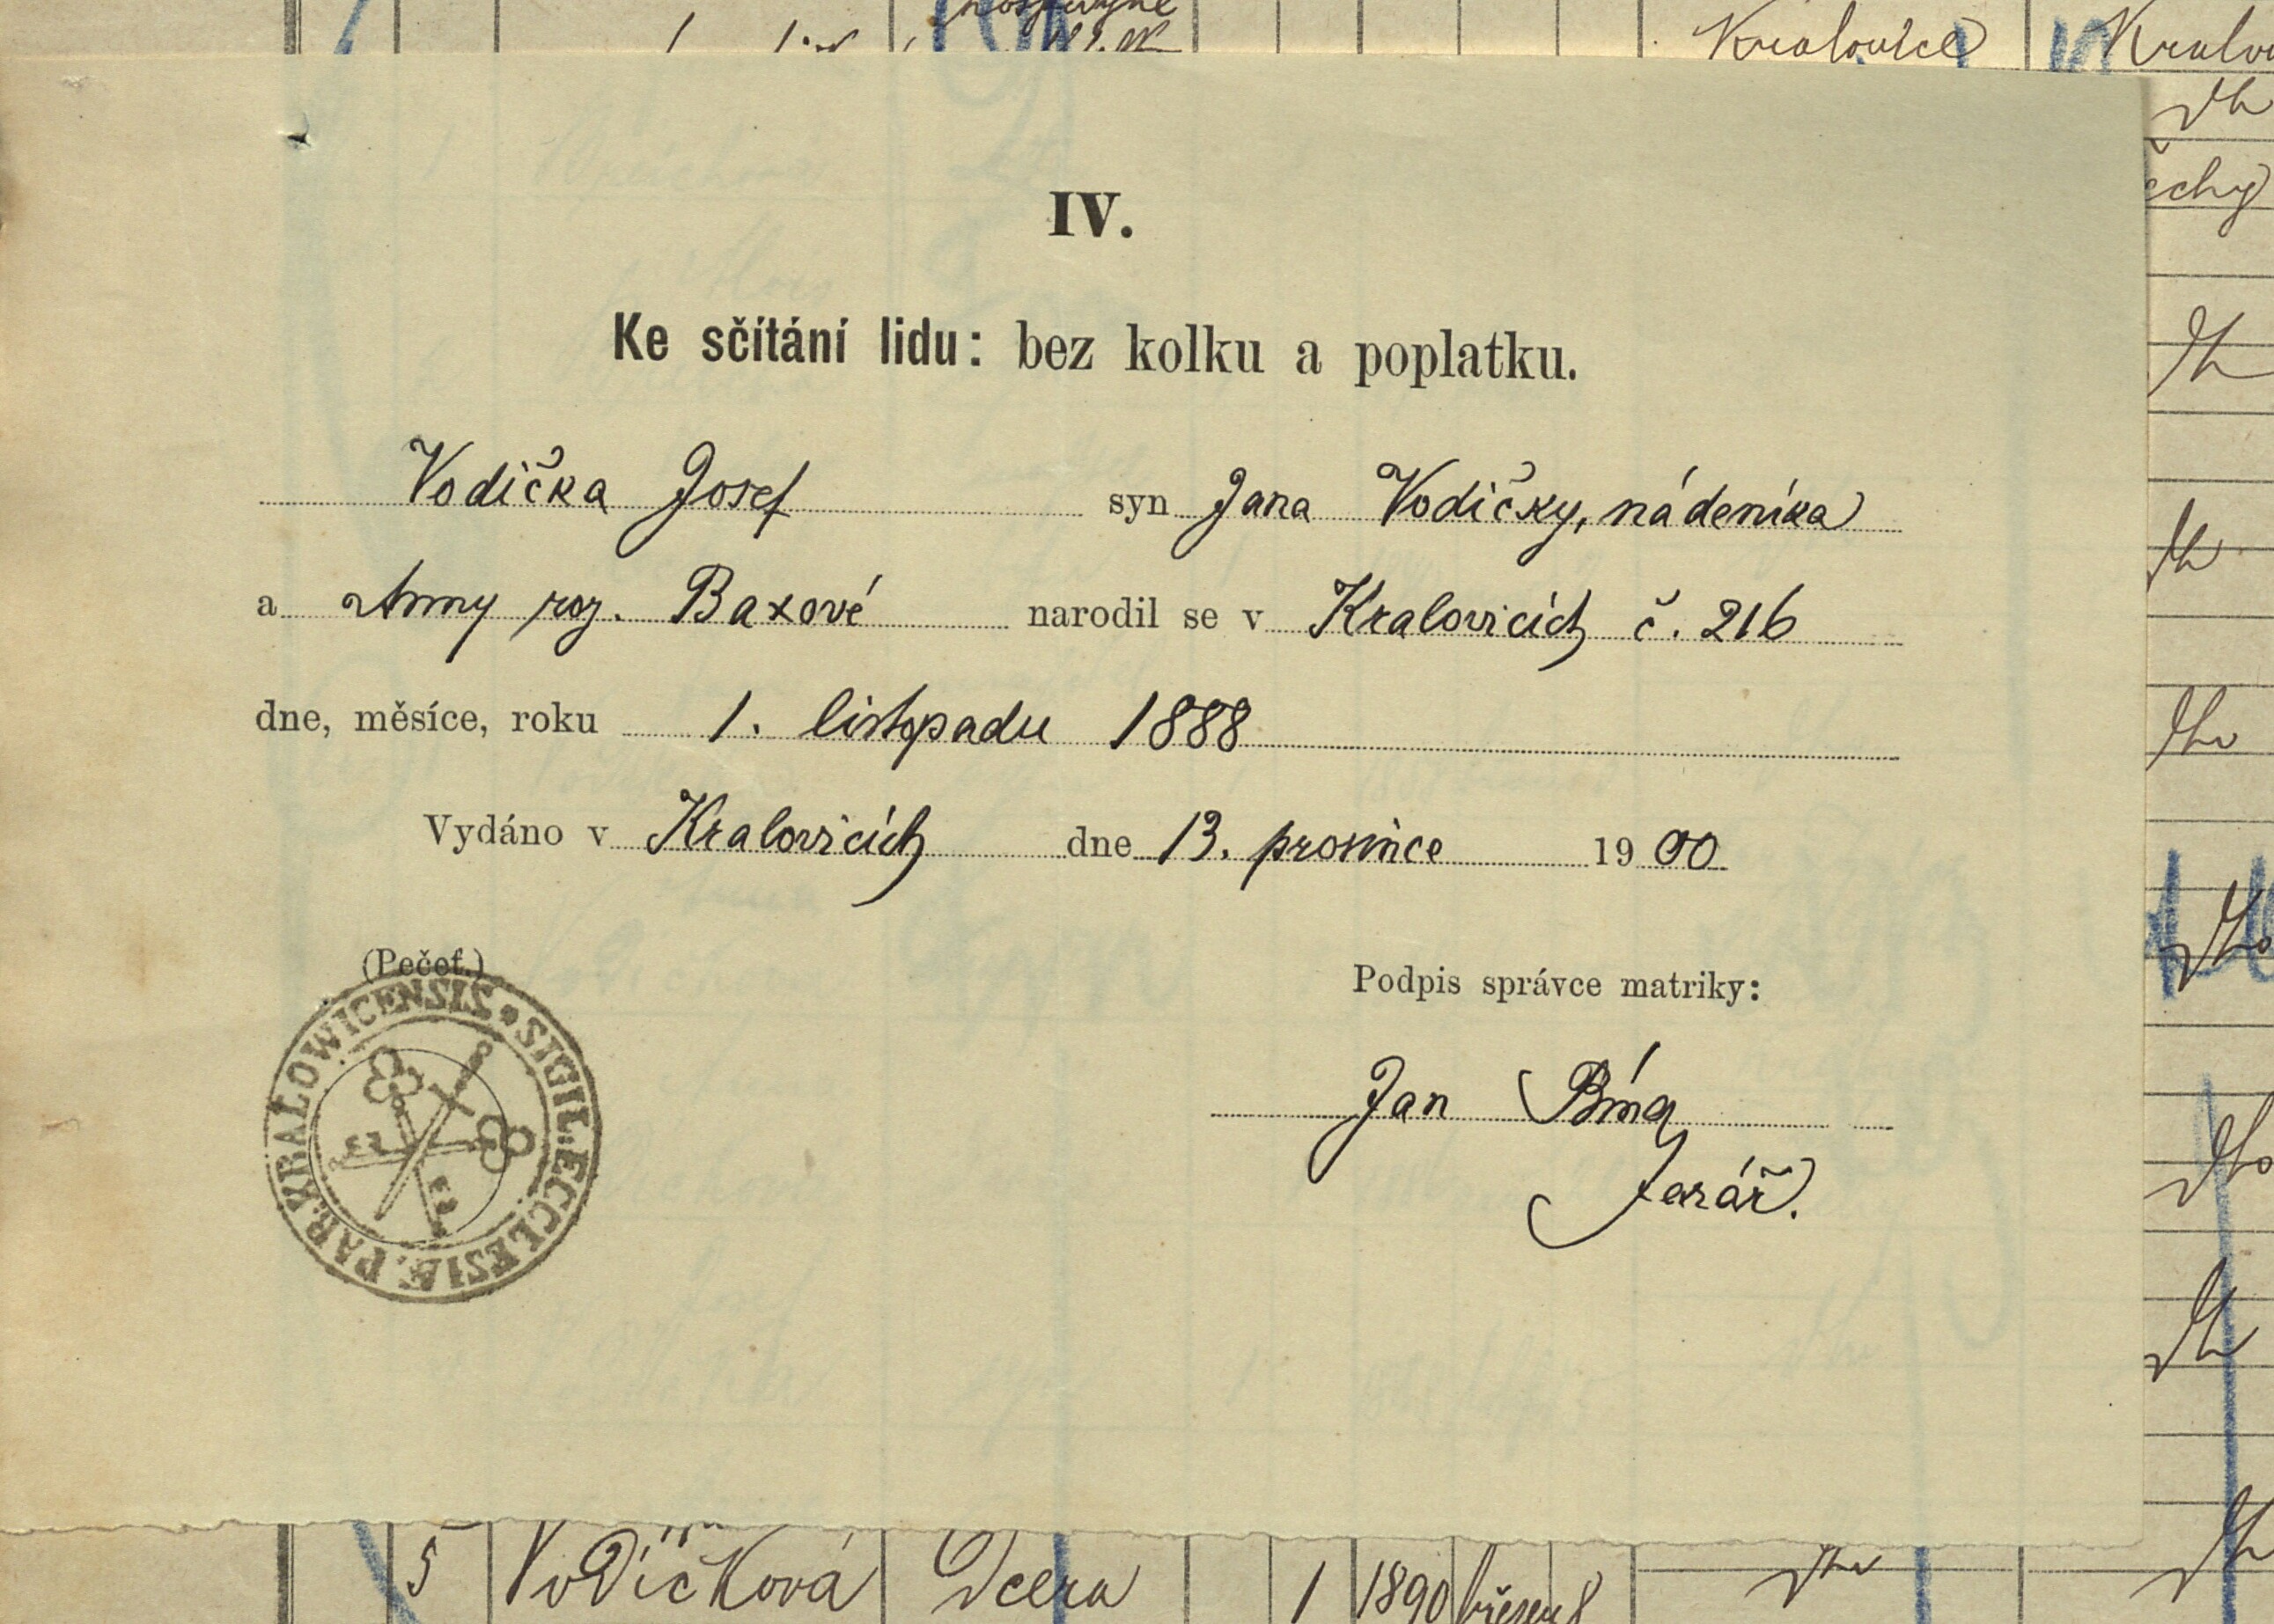 Kralovice
IV.
Ke sčítání lidu: bez kolku a poplatku.
Vodička Josef syn Jana Vodičky, nádeníka
a Anny roz. Baxové narodil se v Kralovicích č. 216
dne, měsíce, roku 1. listopadu 1888
Vydáno v Kralovicích dne 13. prosince 1900
(Pečeť.)
SIGIL. ECCLESIÆ. PAR. KRALOWICENSIS
Podpis správce matriky:
Jan Bína
farář.
5 Vodičková Dcera 1 1890 březen 8